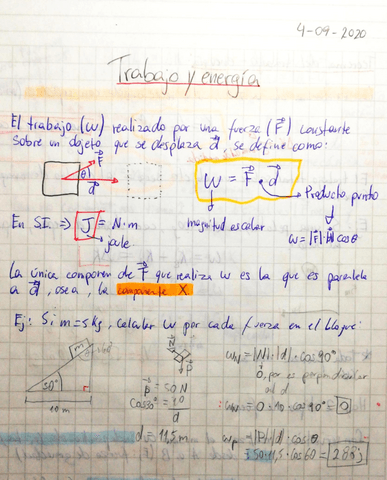 4-09-2020
Trabajo y energía
El trabajo (W) realizado por una fuerza (F⃗) constante
sobre un objeto que se desplaza d⃗, se define como:
F⃗
θ
d⃗
W = F⃗ • d⃗
Producto punto
magnitud escalar
W = |F⃗|·|d⃗| cos θ
En SI ⇒ J = N·m
joule
La única componen de F⃗ que realiza W es la que es paralela
a d⃗, osea, la componente X
Ej: Si m=5Kg, calcular W por cada fuerza en el bloque:
m
30°
10 m
N
P
P⃗ = 50N
Cos30° = 10
d
d = 11,5 m
W_N = |N|·|d|·cos 90°
0, por es perpendicular
al d
W_N = 0·10·cos 90° = 0
W_P = |P|·|d|·cos θ
= 50·11,5·cos 60 = 288 j